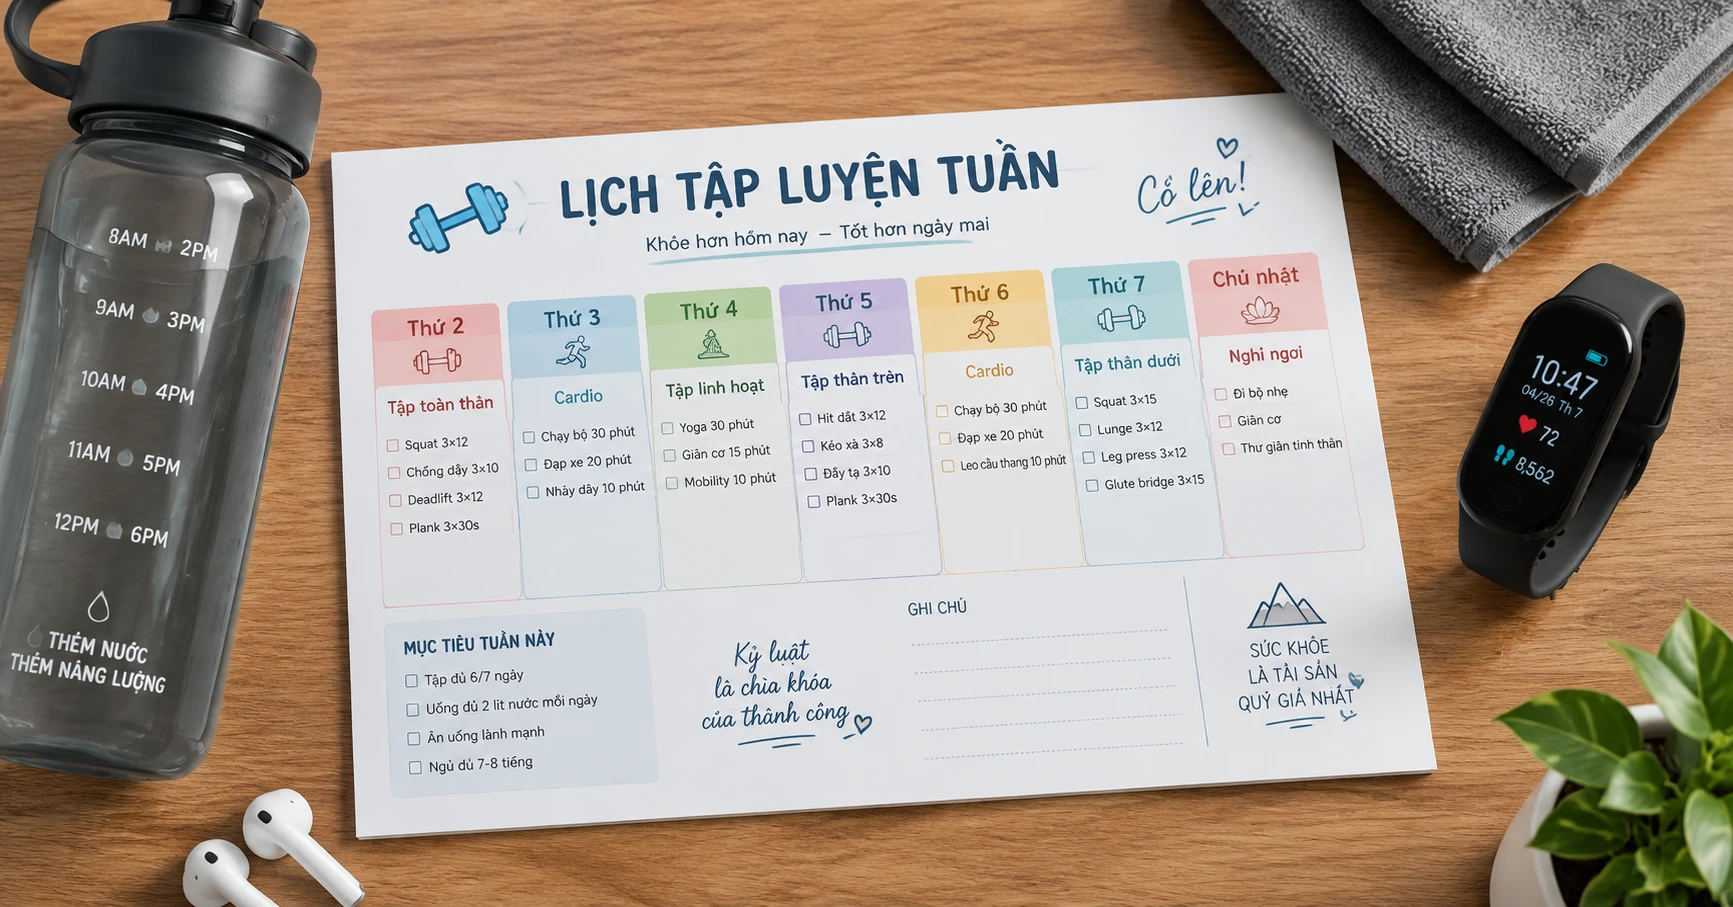 8AM 2PM
9AM 3PM
10AM 4PM
11AM 5PM
12PM 6PM
THÊM NƯỚC
THÊM NĂNG LƯỢNG
LỊCH TẬP LUYỆN TUẦN
Khỏe hơn hôm nay – Tốt hơn ngày mai
Cố lên!
Thứ 2
Tập toàn thân
Squat 3×12
Chống đẩy 3×10
Deadlift 3×12
Plank 3×30s
Thứ 3
Cardio
Chạy bộ 30 phút
Đạp xe 20 phút
Nhảy dây 10 phút
Thứ 4
Tập linh hoạt
Yoga 30 phút
Giãn cơ 15 phút
Mobility 10 phút
Thứ 5
Tập thân trên
Hít đất 3×12
Kéo xà 3×8
Đẩy tạ 3×10
Plank 3×30s
Thứ 6
Cardio
Chạy bộ 30 phút
Đạp xe 20 phút
Leo cầu thang 10 phút
Thứ 7
Tập thân dưới
Squat 3×15
Lunge 3×12
Leg press 3×12
Glute bridge 3×15
Chủ nhật
Nghỉ ngơi
Đi bộ nhẹ
Giãn cơ
Thư giãn tinh thần
MỤC TIÊU TUẦN NÀY
Tập đủ 6/7 ngày
Uống đủ 2 lít nước mỗi ngày
Ăn uống lành mạnh
Ngủ đủ 7-8 tiếng
Kỷ luật
là chìa khóa
của thành công
GHI CHÚ
SỨC KHỎE
LÀ TÀI SẢN
QUÝ GIÁ NHẤT
10:47
04/26 Th 7
72
8,562